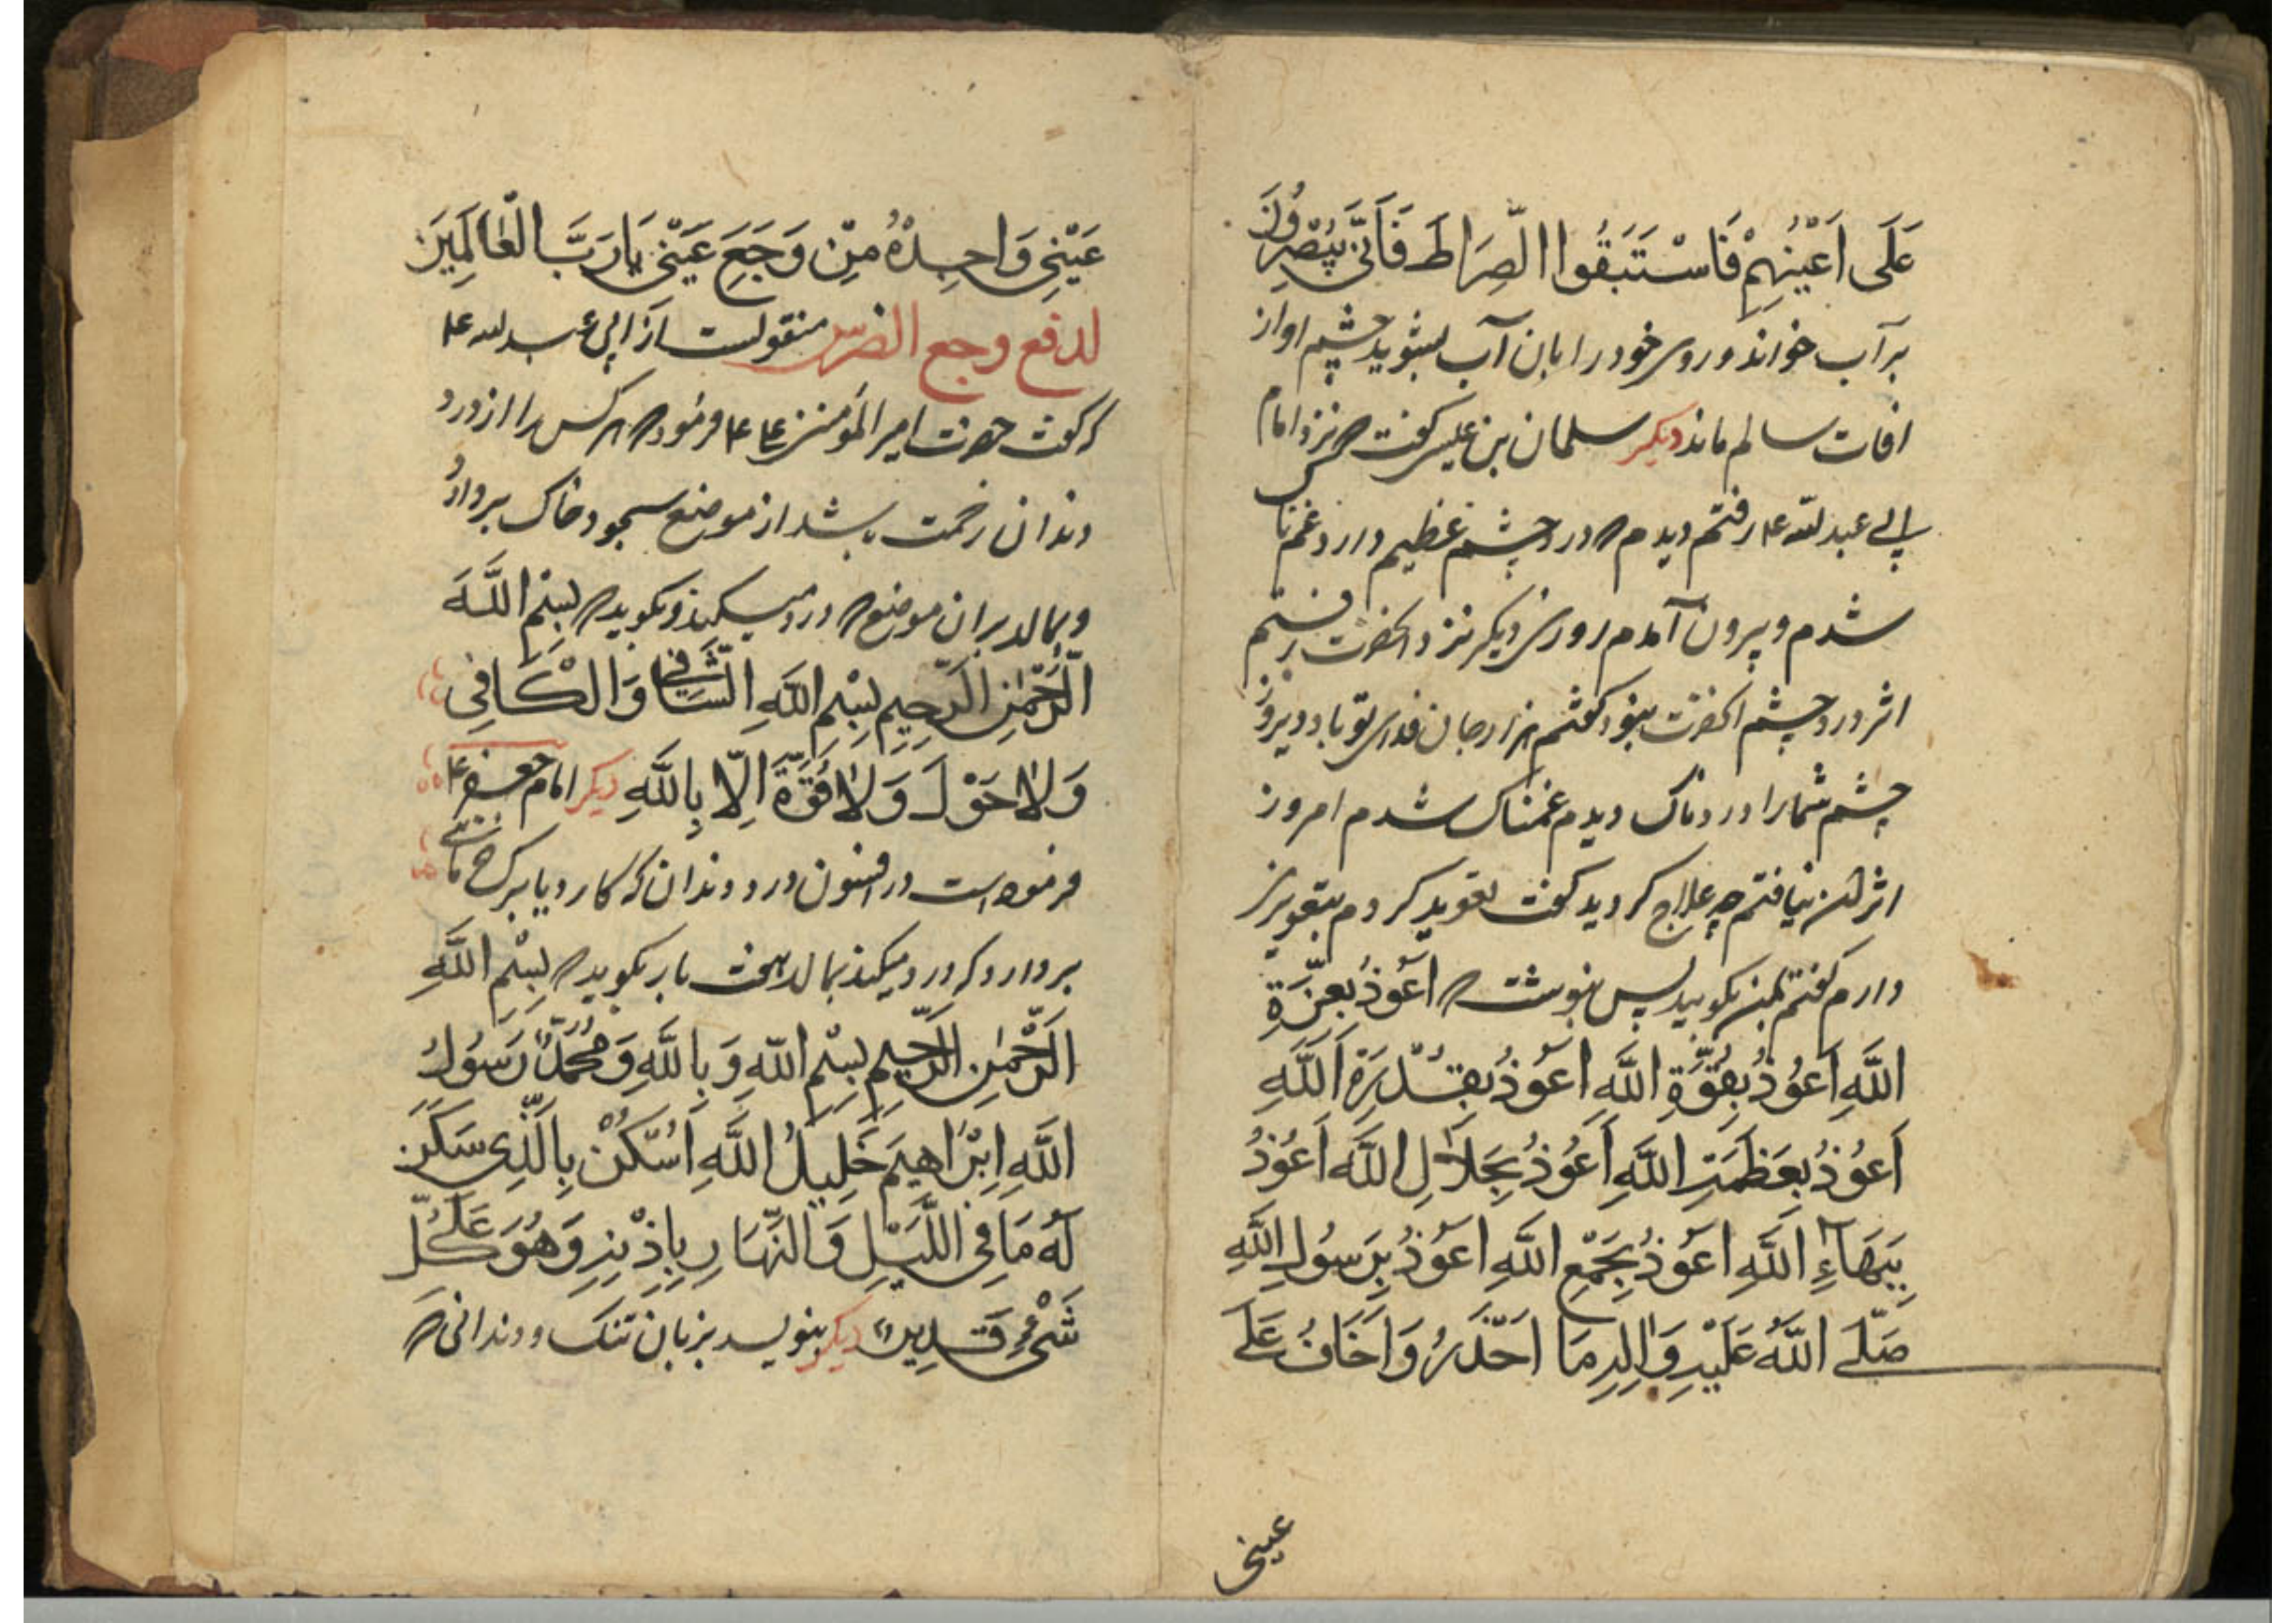 عَلَى اَعْيُنِهِمْ فَاسْتَبَقُوا الصِّرَاطَ فَاَنّٰى يُبْصِرُونَ
بر آب خواند و روی خود را بان آب بشوید چشم او از
افات سالم ماند دیگر سلمان بن عیسی گفت که نزد امام
ابی عبدلله ع رفتم دیدم که درد چشم عظیم دارد غمناک
شدم و بیرون آمدم روز دیگر نزد انحضرت رفتم
اثر درد چشم انحضرت نبود گفتم هزار جان فدای تو باد دیروز
چشم شما را دردناک دیدم غمناک شدم امروز
اثر ان نیافتم چه علاج کردید گفت تعویذ کردم بتعویذی
دارم گفتم بمن بگویید پس نوشت که اَعُوذُ بِعِزَّةِ
اللَّهِ اَعُوذُ بِقُوَّةِ اللَّهِ اَعُوذُ بِقُدْرَةِ اللَّهِ
اَعُوذُ بِعَظَمَتِ اللَّهِ اَعُوذُ بِجَلَالِ اللَّهِ اَعُوذُ
بِبَهَآءِ اللَّهِ اَعُوذُ بِجَمْعِ اللَّهِ اَعُوذُ بِرَسُولِ اللَّهِ
صَلَّى اللَّهُ عَلَيْهِ وَاٰلِهِ مَا اَحْذَرُ وَاَخَافُ عَلَى
عینی
عَيْنِي وَاَجِدُهُ مِنْ وَجَعِ عَيْنِي يَا رَبَّ الْعَالَمِينَ
لدفع وجع الضرس منقولست از ابی عبدلله ع
که گفت حضرت امیر المؤمنین ع فرمود که هر کس را از درد
دندان زحمت باشد از موضع سجود خاک بردارد
و بمالد بران موضع که درد میکند و بگوید که بِسْمِ اللَّهِ
الرَّحْمٰنِ الرَّحِيمِ بِسْمِ اللَّهِ الشَّافِي وَالْكَافِي
وَلَا حَوْلَ وَلَا قُوَّةَ اِلَّا بِاللَّهِ دیگر امام جعفر ع
فرموده است در افسون درد دندان که کارد یا برگ
بردارد که درد میکند بمالد هفت بار بگوید که بِسْمِ اللَّهِ
الرَّحْمٰنِ الرَّحِيمِ بِسْمِ اللَّهِ وَبِاللَّهِ وَمُحَمَّدٌ رَسُولُ
اللَّهِ اِبْرَاهِيمَ خَلِيلُ اللَّهِ اُسْكُنْ بِالَّذِي سَكَنَ
لَهُ مَا فِي اللَّيْلِ وَالنَّهَارِ بِاِذْنِهِ وَهُوَ عَلَى كُلِّ
شَيْءٍ قَدِيرٌ دیگر بنویسد بزبان تنک و دندانی که